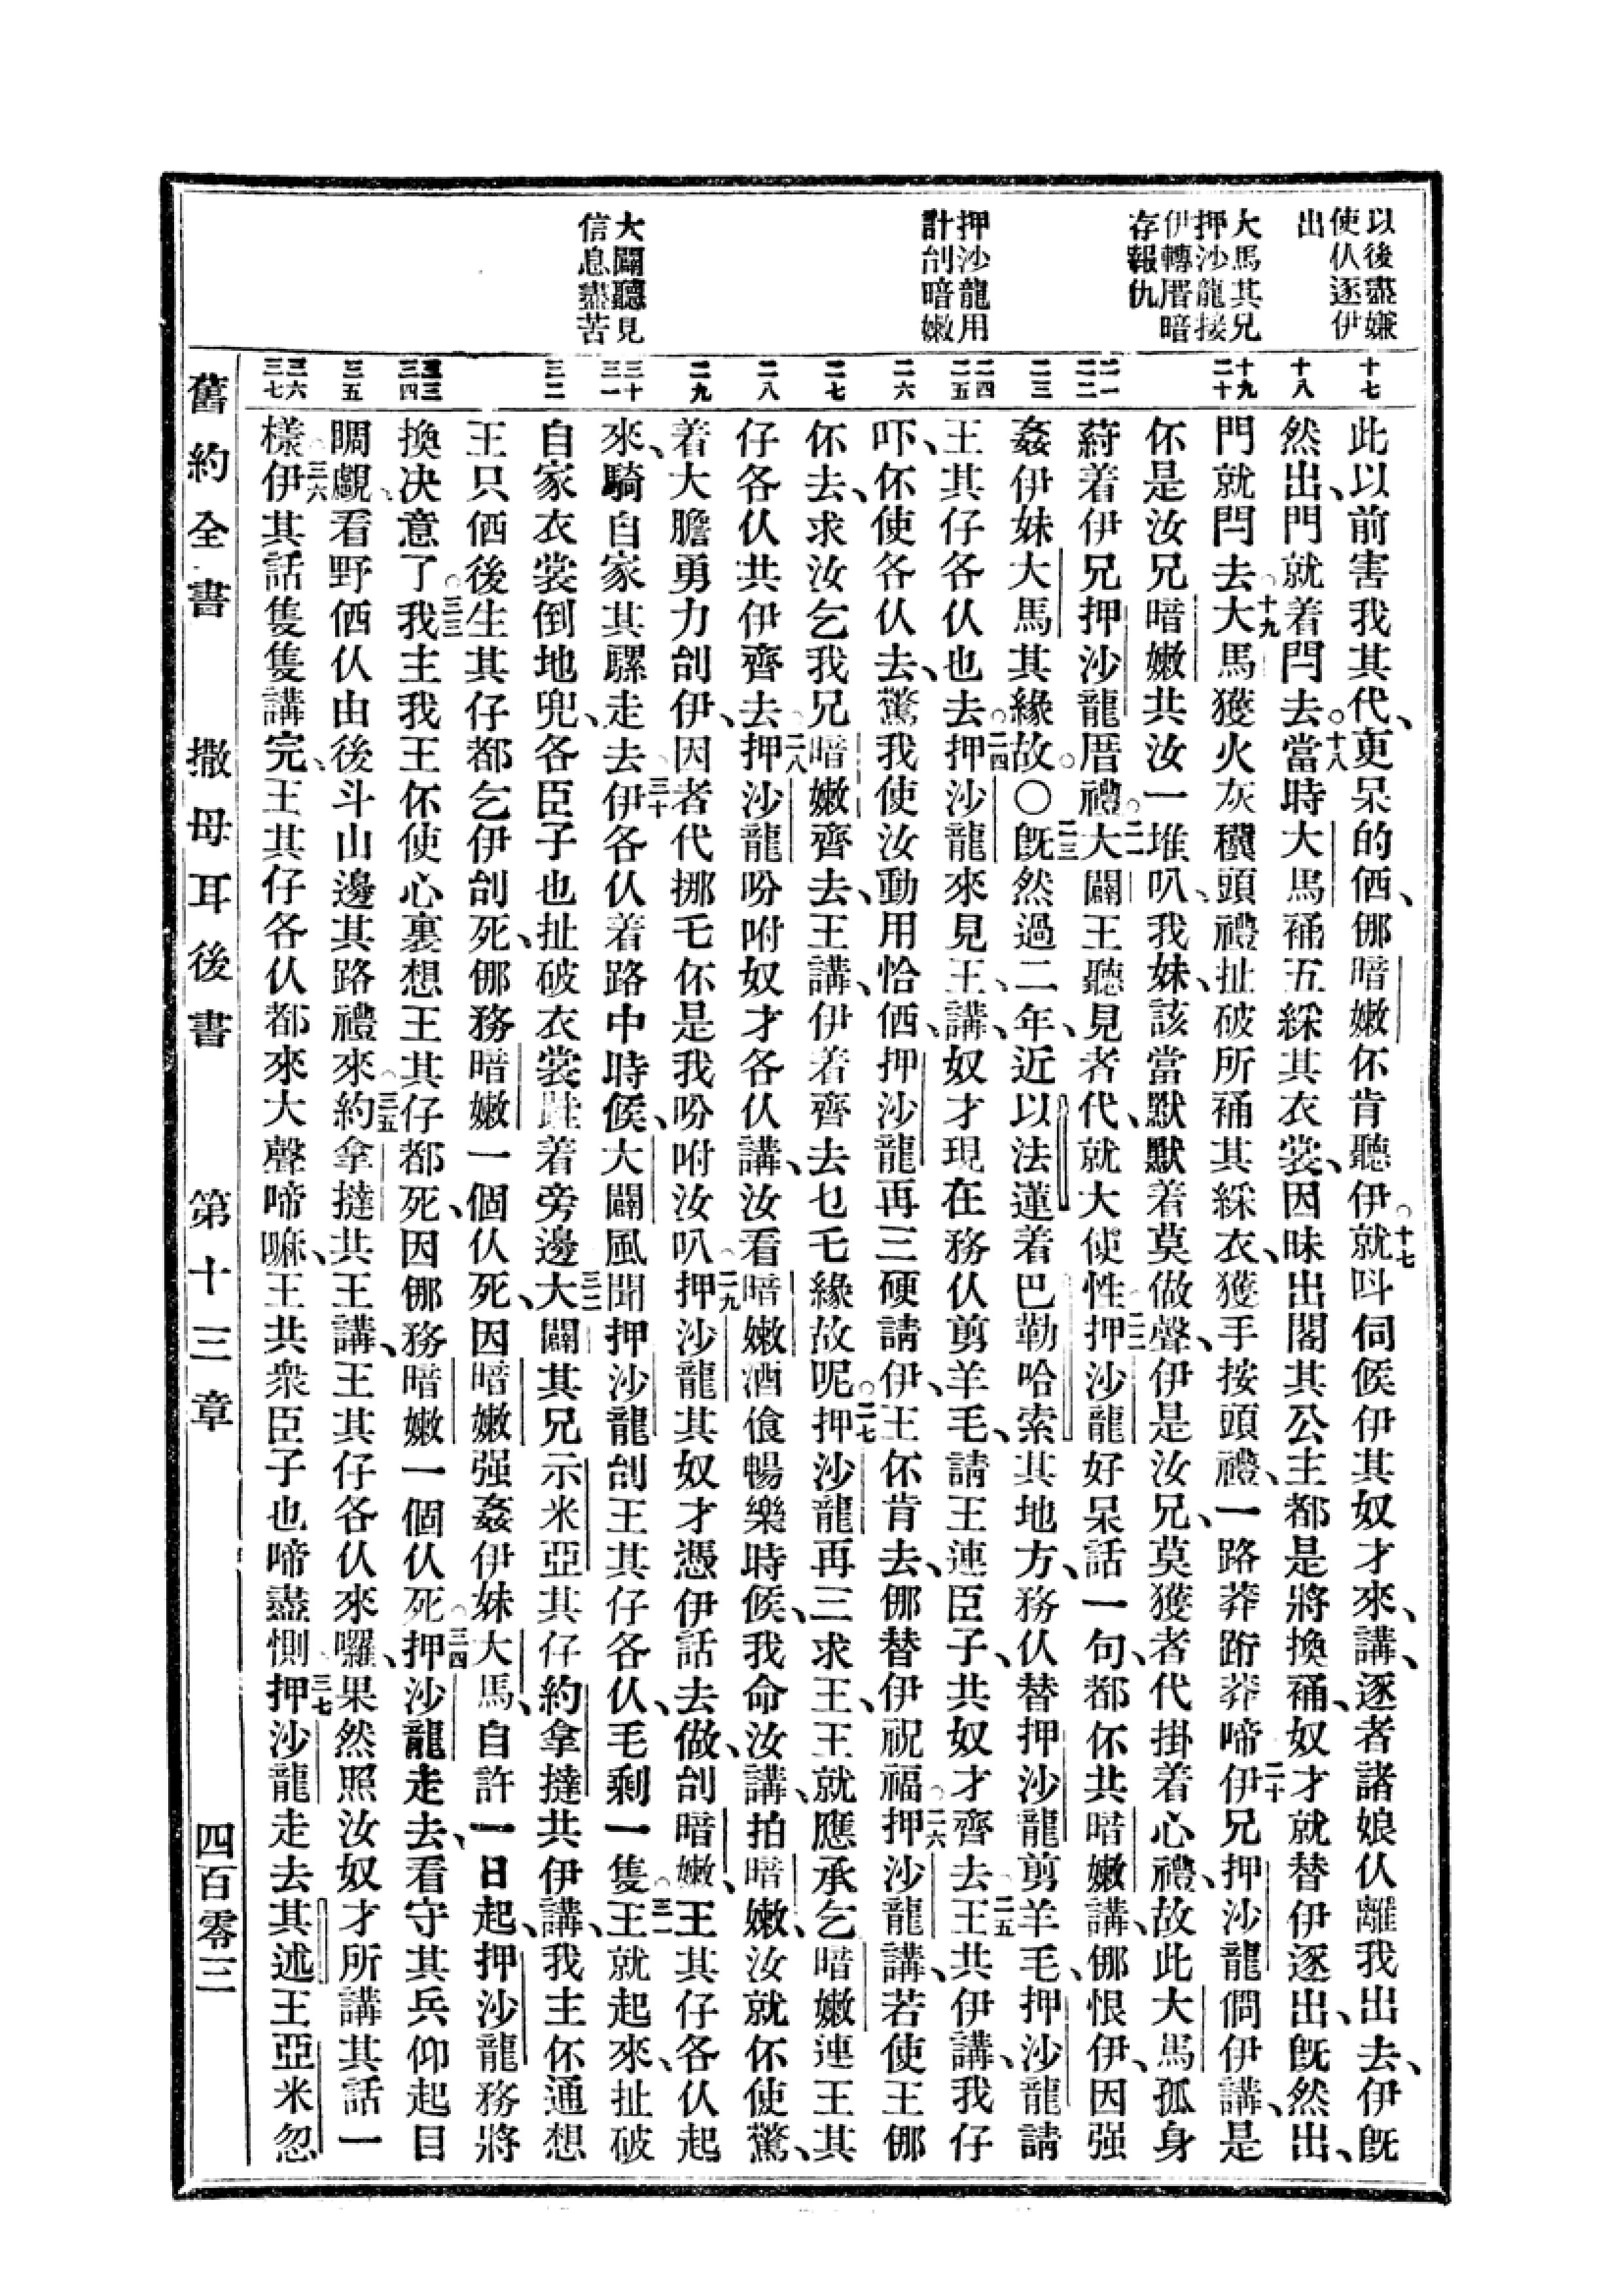 以後盡嫌
使仈逐伊
出
大馬其兄
押沙龍接
伊轉厝暗
存報仇
押沙龍用
計刣暗嫩
大闢聽見
信息盡苦
十七
十八
十九
二十
二一
二二
二三
二四
二五
二六
二七
二八
二九
三十
三一
三二
三三
三四
三五
三六
三七
此以前害我其代、更呆的價、那暗嫩伓肯聽伊。十七就叫伺候伊其奴才來、講、逐者諸娘仈離我出去、伊旣
然出、門就着閂去。十八當時大馬䘄五綵其衣裳、因昧出閣其公主都是將換䘄、奴才就替伊逐出、旣然出、
門就閂去。十九大馬獲火灰穳頭禮、扯破所䘄其綵衣、獲手按頭禮、一路莽跡莽啼。二十伊兄押沙龍問伊講、是
伓是汝兄暗嫩共汝一堆叭、我妹、該當默默着莫做聲、伊是汝兄、莫獲者代掛着心禮、故此大馬孤身
蒔着伊兄押沙龍厝禮。二一大闢王聽見者代、就大使性。二二押沙龍好呆話一句、都伓共暗嫩講、那恨伊、因强
姦伊妹大馬其緣故。〇二三旣然過二年、近以法蓮着巴勒哈索其地方、務仈替押沙龍剪羊毛、押沙龍請
王其仔各仈也去。二四押沙龍來見王、講、奴才現在務仈剪羊毛、請王連臣子、共奴才齊去。二五王共伊講、我仔
吓、伓使各仈去、驚我使汝動用恰価、押沙龍再三硬請伊、王伓肯去、那替伊祝福。二六押沙龍講、若使王那
伓去、求汝乞我兄暗嫩齊去、王講、伊着齊去乜乇緣故呢。二七押沙龍再三求王、王就應承乞暗嫩連王其
仔各仈共伊齊去。二八押沙龍吩咐奴才各仈講、汝看暗嫩酒飡暢樂時候、我命汝講、拍暗嫩、汝就伓使驚、
着大膽勇力刣伊、因者代挪乇伓是我吩咐汝叭。二九押沙龍其奴才憑伊話去做、刣暗嫩、王其仔各仈起
來、騎自家其騾走去。三十伊各仈着路中時候、大闢風聞押沙龍刣王其仔各仈、乇剩一隻。三一王就起來、扯破
自家衣裳倒地兜、各臣子也扯破衣裳跬着旁邊。三二大闢其兄示米亞其仔約拿撻共伊講、我主伓通想
王只価後生其仔都乞伊刣死、那務暗嫩一個仈死、因暗嫩强姦伊妹大馬、自許一日起、押沙龍務將
換决意了。三三我主我王伓使心裏想王其仔都死、因那務暗嫩一個仈死。三四押沙龍走去、看守其兵仰起目
睭覷看野価仈由後斗山邊其路禮來。三五約拿撻共王講、王其仔各仈來囉、果然照汝奴才所講其話一
樣。三六伊其話隻隻講完、王其仔各仈都來大聲啼嘛、王共衆臣子也啼盡惻。三七押沙龍走去其述王亞米忽
舊約全書 撒母耳後書 第十三章 四百零三